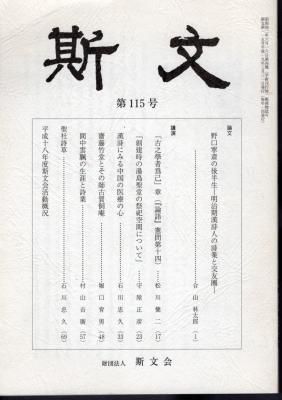 斯文
第115号
論文
野口寧斎の後半生―明治期漢詩人の詩業と交友圏―
合山林太郎(1)
講演
「古之學者爲己」章(『論語』憲問第十四)
松川健二(17)
「創建時の湯島聖堂の祭祀空間について」
守屋正彦(23)
漢詩にみる中国の医療の心
石川忠久(33)
齋藤竹堂とその師古賀侗庵
堀口育男(48)
間中雲颿の生涯と詩業
村山吉廣(57)
聖社詩草
石川忠久(69)
平成十八年度斯文会活動概況
財団法人 斯文会